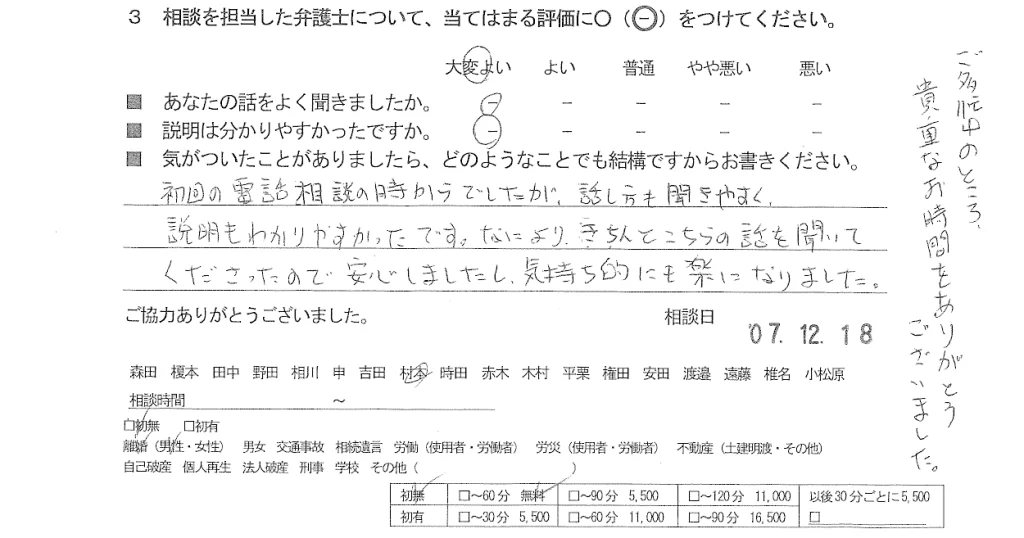 3 相談を担当した弁護士について、当てはまる評価に○(㊀)をつけてください。
大変よい よい 普通 やや悪い 悪い
■ あなたの話をよく聞きましたか。 － － － － －
■ 説明は分かりやすかったですか。 － － － － －
■ 気がついたことがありましたら、どのようなことでも結構ですからお書きください。
初回の電話相談の時からでしたが、話し方も聞きやすく、
説明もわかりやすかったです。なにより、きちんとこちらの話を聞いて
くださったので安心しましたし、気持ち的にも楽になりました。
ご多忙中のところ、
貴重なお時間をありがとう
ございました。
ご協力ありがとうございました。 相談日 '07.12.18
森田 榎本 田中 野田 相川 申 吉田 村本 時田 赤木 木村 平栗 権田 安田 渡邉 遠藤 椎名 小松原
相談時間 ～
□初無 □初有
離婚(男性・女性) 男女 交通事故 相続遺言 労働(使用者・労働者) 労災(使用者・労働者) 不動産(土建明渡・その他)
自己破産 個人再生 法人破産 刑事 学校 その他( )
初無 □～60分 無料 □～90分 5,500 □～120分 11,000 以後30分ごとに5,500
初有 □～30分 5,500 □～60分 11,000 □～90分 16,500 □